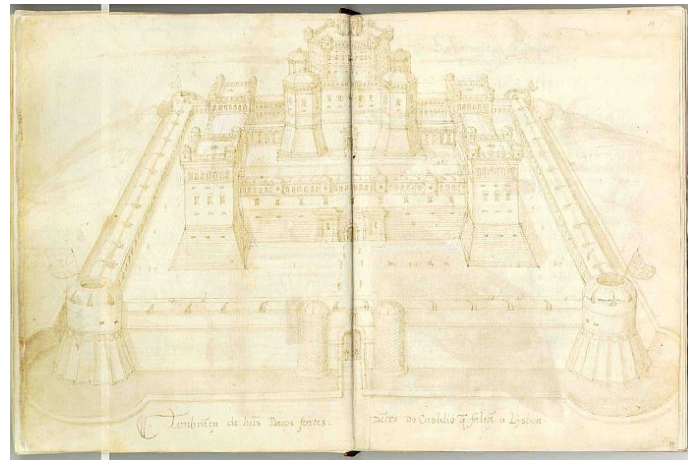 Lembrãça de hũs Paços fortes. dẽtro do Castello q̃ falta a Lysboa.